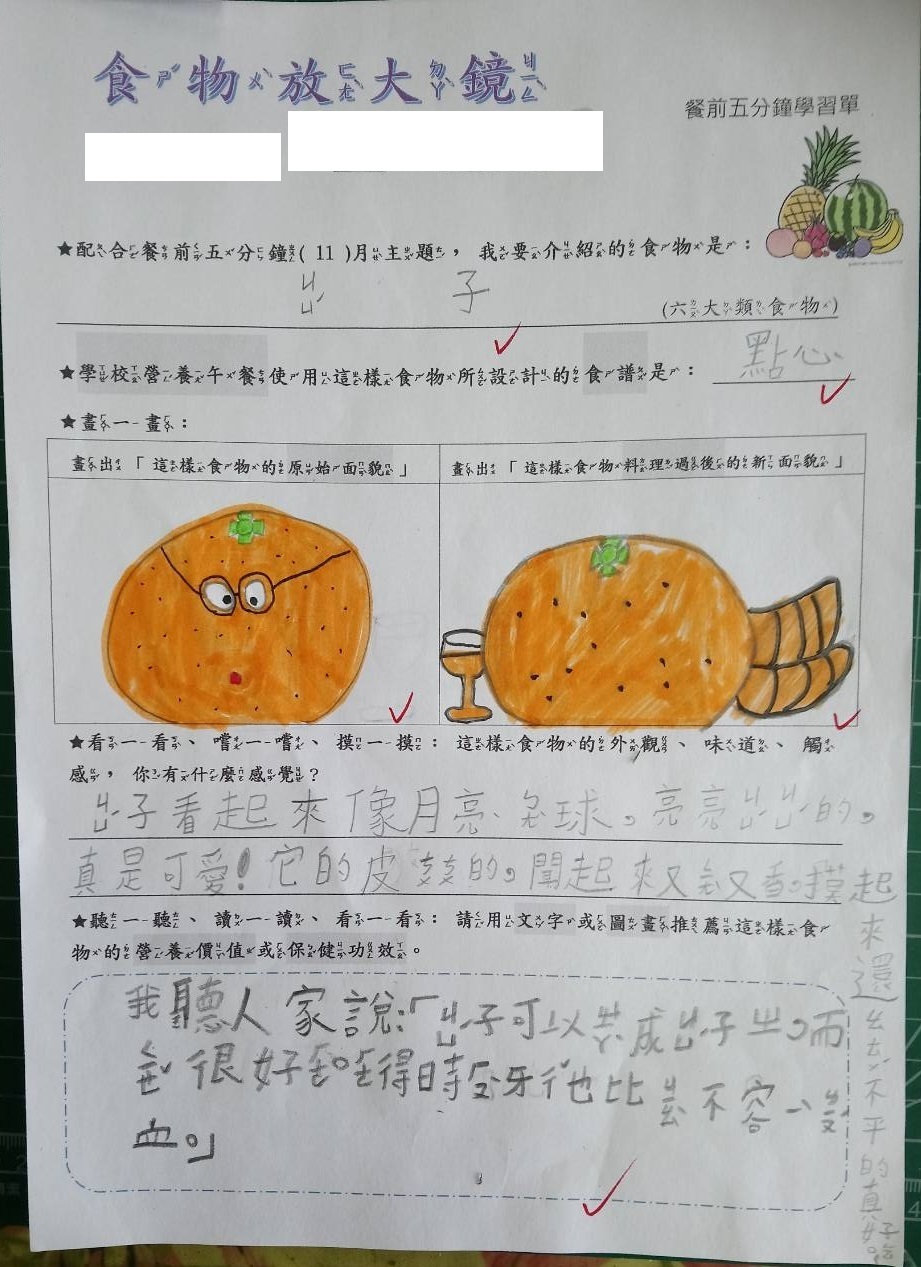 食物放大鏡
餐前五分鐘學習單
★配合餐前五分鐘( 11 )月主題，我要介紹的食物是：
ㄐㄩˊ子
(六大類食物)
★學校營養午餐使用這樣食物所設計的食譜是：點心
★畫一畫：
畫出「這樣食物的原始面貌」
畫出「這樣食物料理過後的新面貌」
★看一看、嚐一嚐、摸一摸：這樣食物的外觀、味道、觸
感，你有什麼感覺？
ㄐㄩˊ子看起來像月亮、球。亮亮ㄐㄩˊㄐㄩˊ的。
真是可愛！它的皮的。聞起來又又香。摸起
來還不平的真好吃。
★聽一聽、讀一讀、看一看：請用文字或圖畫推薦這樣食
物的營養價值或保健功效。
我聽人家說：「ㄐㄩˊ子可以ㄓㄚˋ成ㄐㄩˊ子ㄓ。而
且很好得時牙他比不容一
血。」